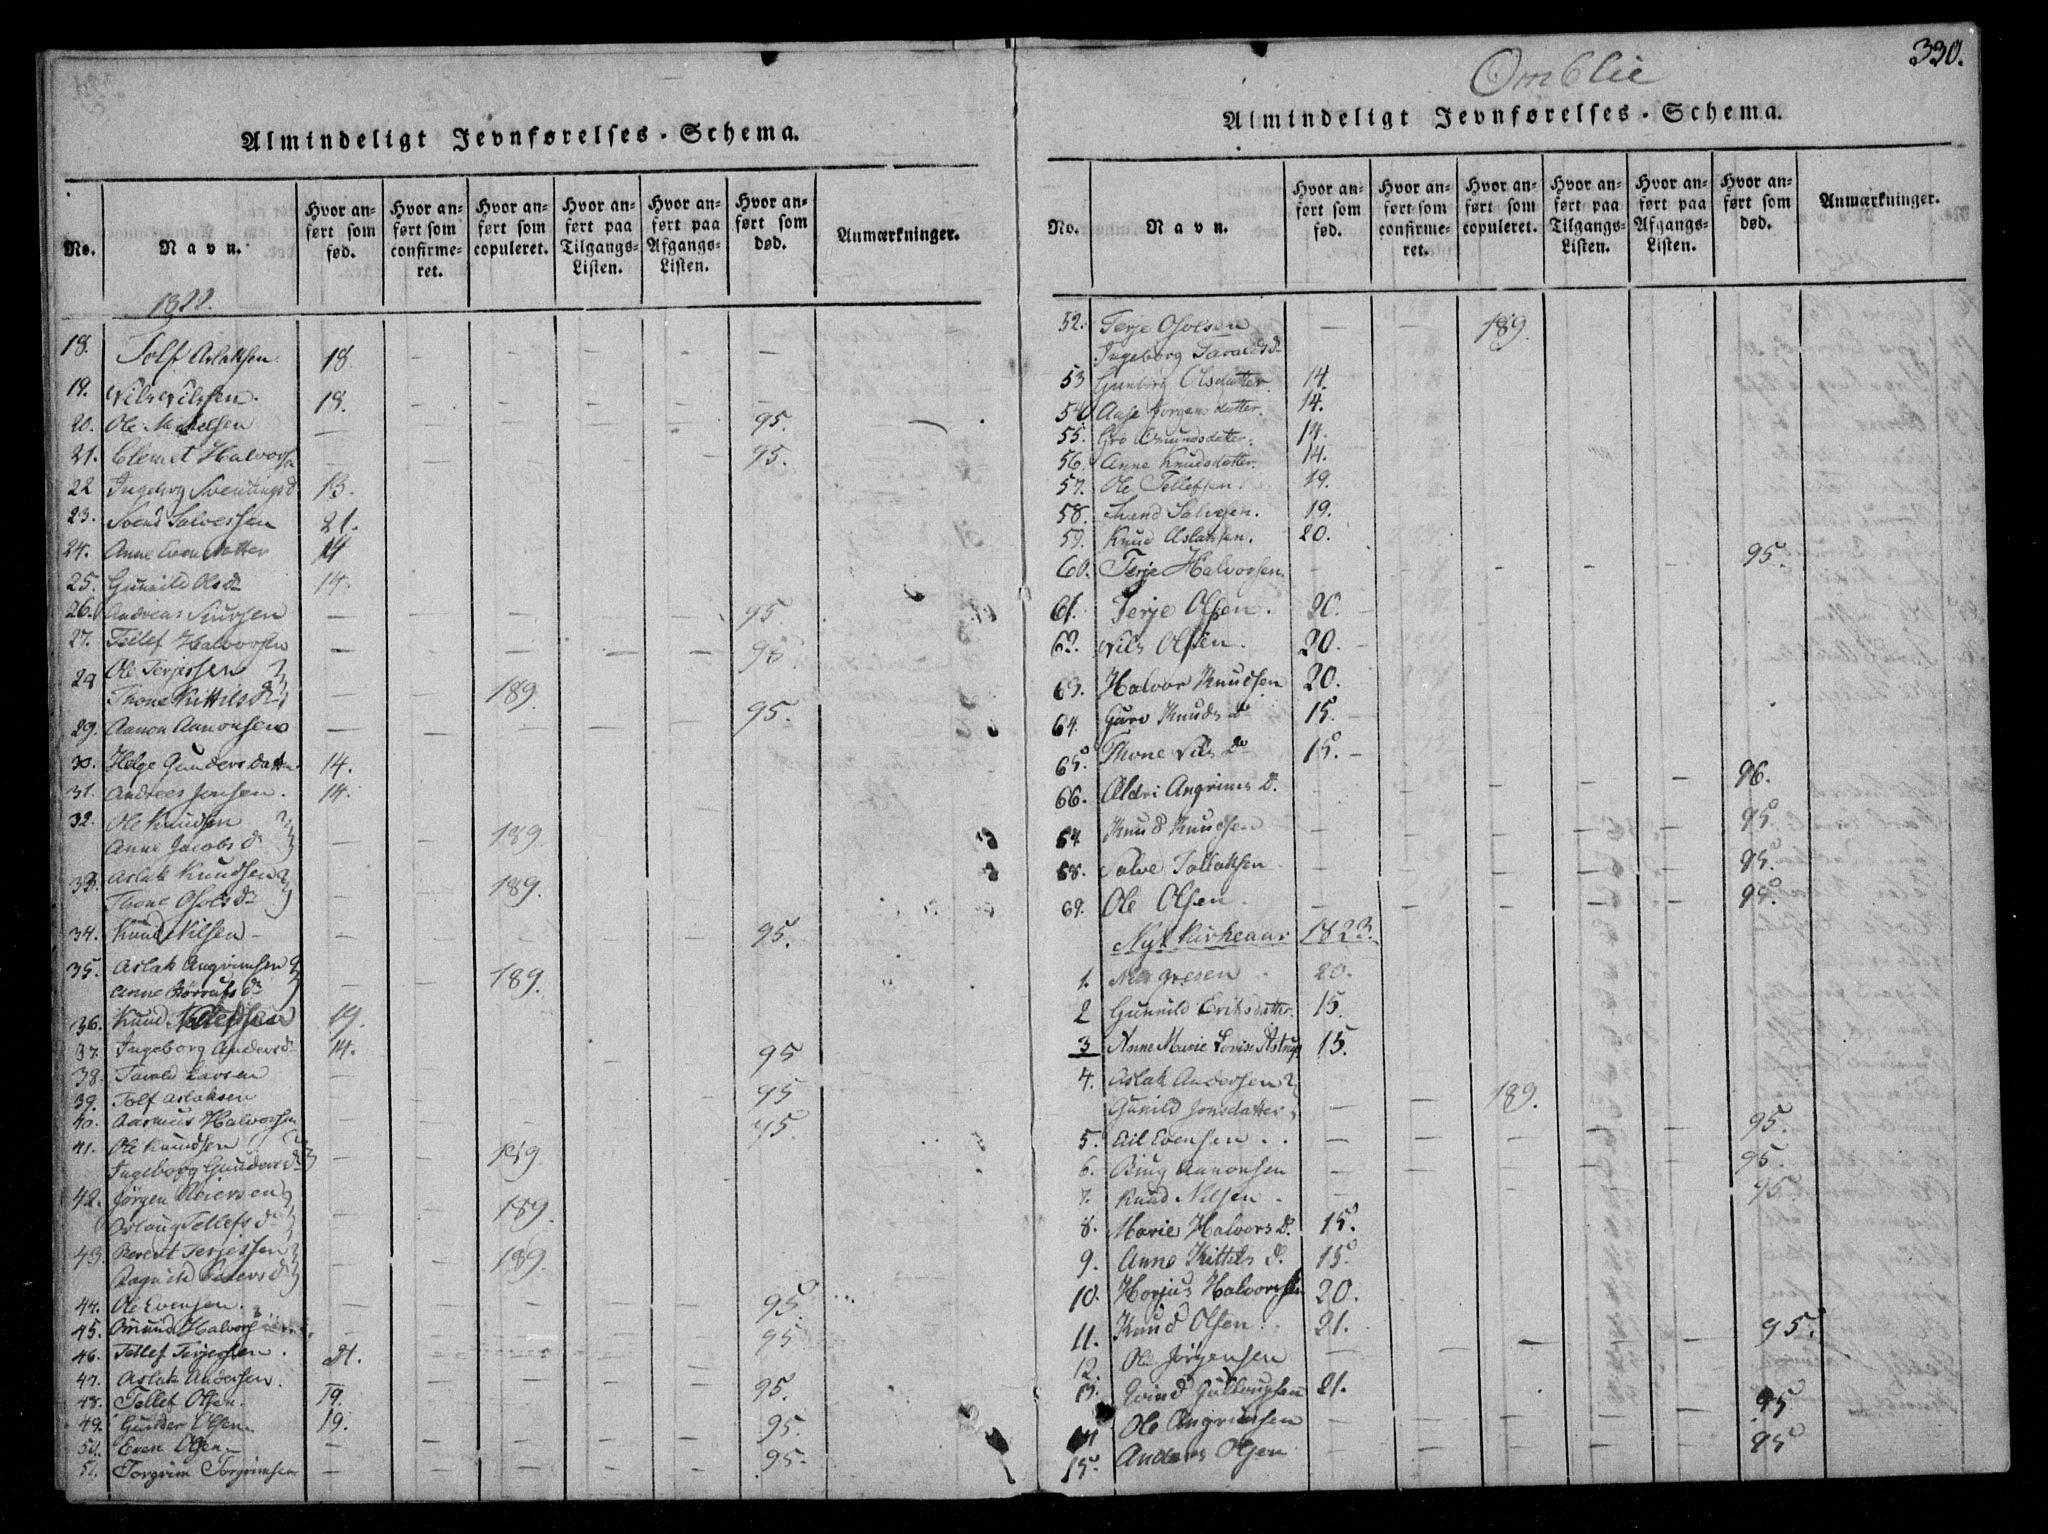 Almindeligt Jevnførelses-Schema.
No. Navn. Hvor anført som fød. Hvor anført som confirmeret. Hvor anført som copuleret. Hvor anført paa Tilgangs-Listen. Hvor anført paa Afgangs-Listen. Hvor anført som død. Anmærkninger.
1822.
18. Tolf Aslaksen. 18.
19. Nils Nilssen. 18.
20. Ole 95.
21. Clemet Halvorsn 95.
22 Ingeborg Svenungsd 13.
23. Svend Salvessen 21.
24. Anne Evensdatter 14
25. Gunnild Olsdr 14.
26. Andreas 95.
27. Tellef Halvorsen 95.
28 Ole Terjessen
Thone Kittilsdr 189.
29. Aanon Aanonsen 95.
30. Helge Gundersdatter 14.
31. Andreas Jensen. 14.
32. Ole Knudsen
Anne Jacobsd 189
33. Aslak Knudsen
Thone Osolsdr 189.
34. Knud Nilsen 95.
35. Aslak Angrimsen
Anne 189.
36. Knud Tellefsen 19.
37. Ingeborg Andersdr 14.
38. Tarald Larsen 95
39. Tolf Aslaksen 95
40. Aasmus Halvorsen 95.
41. Ole Knudsen
Ingeborg Gundersd 189
42. Jørgen Reiersen
Aslaug Tellefsd 189.
43. Berent Terjessen
Ragnild 189.
44. Ole Evensen. 95.
45. Omund Halvors 95
46. Tellef Terjessen. 21.
47. Aslak Andersen. 95.
48. Tellef Olsen. 19.
49. Gunder Olsen 19. 95.
50. Even Olsen
51. Torgrim Torgrimsen 95.
330.
Omblie
Almindeligt Jevnførelses-Schema.
No. Navn. Hvor anført som fød. Hvor anført som confirmeret. Hvor anført som copuleret. Hvor anført paa Tilgangs-Listen. Hvor anført paa Afgangs-Listen. Hvor anført som død. Anmærkninger.
52. Terje Osolsen 189.
Ingeborg Taraldsdr
53 Gunborg Olsdatter 14.
54 Aase Jørgensdatter. 14.
55. Gro Omundsdatter. 14.
56. Anne Knudsdatter. 14.
57. Ole Tellefsen. 19.
58. Svend Salvesen. 19.
59. Knud Aslaksen. 20.
60. Terje Halvorsen. 95.
61. Terje Olsen. 20.
62. Nils Olsen. 20.
63. Halvor Knudsen 20.
64. Guro Knudsdr 15.
65. Thone Nilsdr 15.
66. Aldri Angrims D. 96.
67 Knud Knudsen 95.
68. Salve Tallaksen 95.
69. Ole Olsen. 95.
Nyt Kirkeaar 1823.
1. 20.
2 Gunnild Eriksdatter. 15.
3 Anne Marie Lovise Astrup 15.
4. Aslak Andersen
Gunild Jonsdatter 189.
5. Eil Evensen 95.
6. Aanonsen 95.
7. Knud Nilsen 95
8. Marie Halvors D. 15.
9. Anne Kittils D. 15.
10. Halvorsen 20.
11. Knud Olsen. 21.
12. Ole Jørgensen 95.
13. Eivind 21.
14 Ole Angrimsen 95
15. Anders Olsen 95